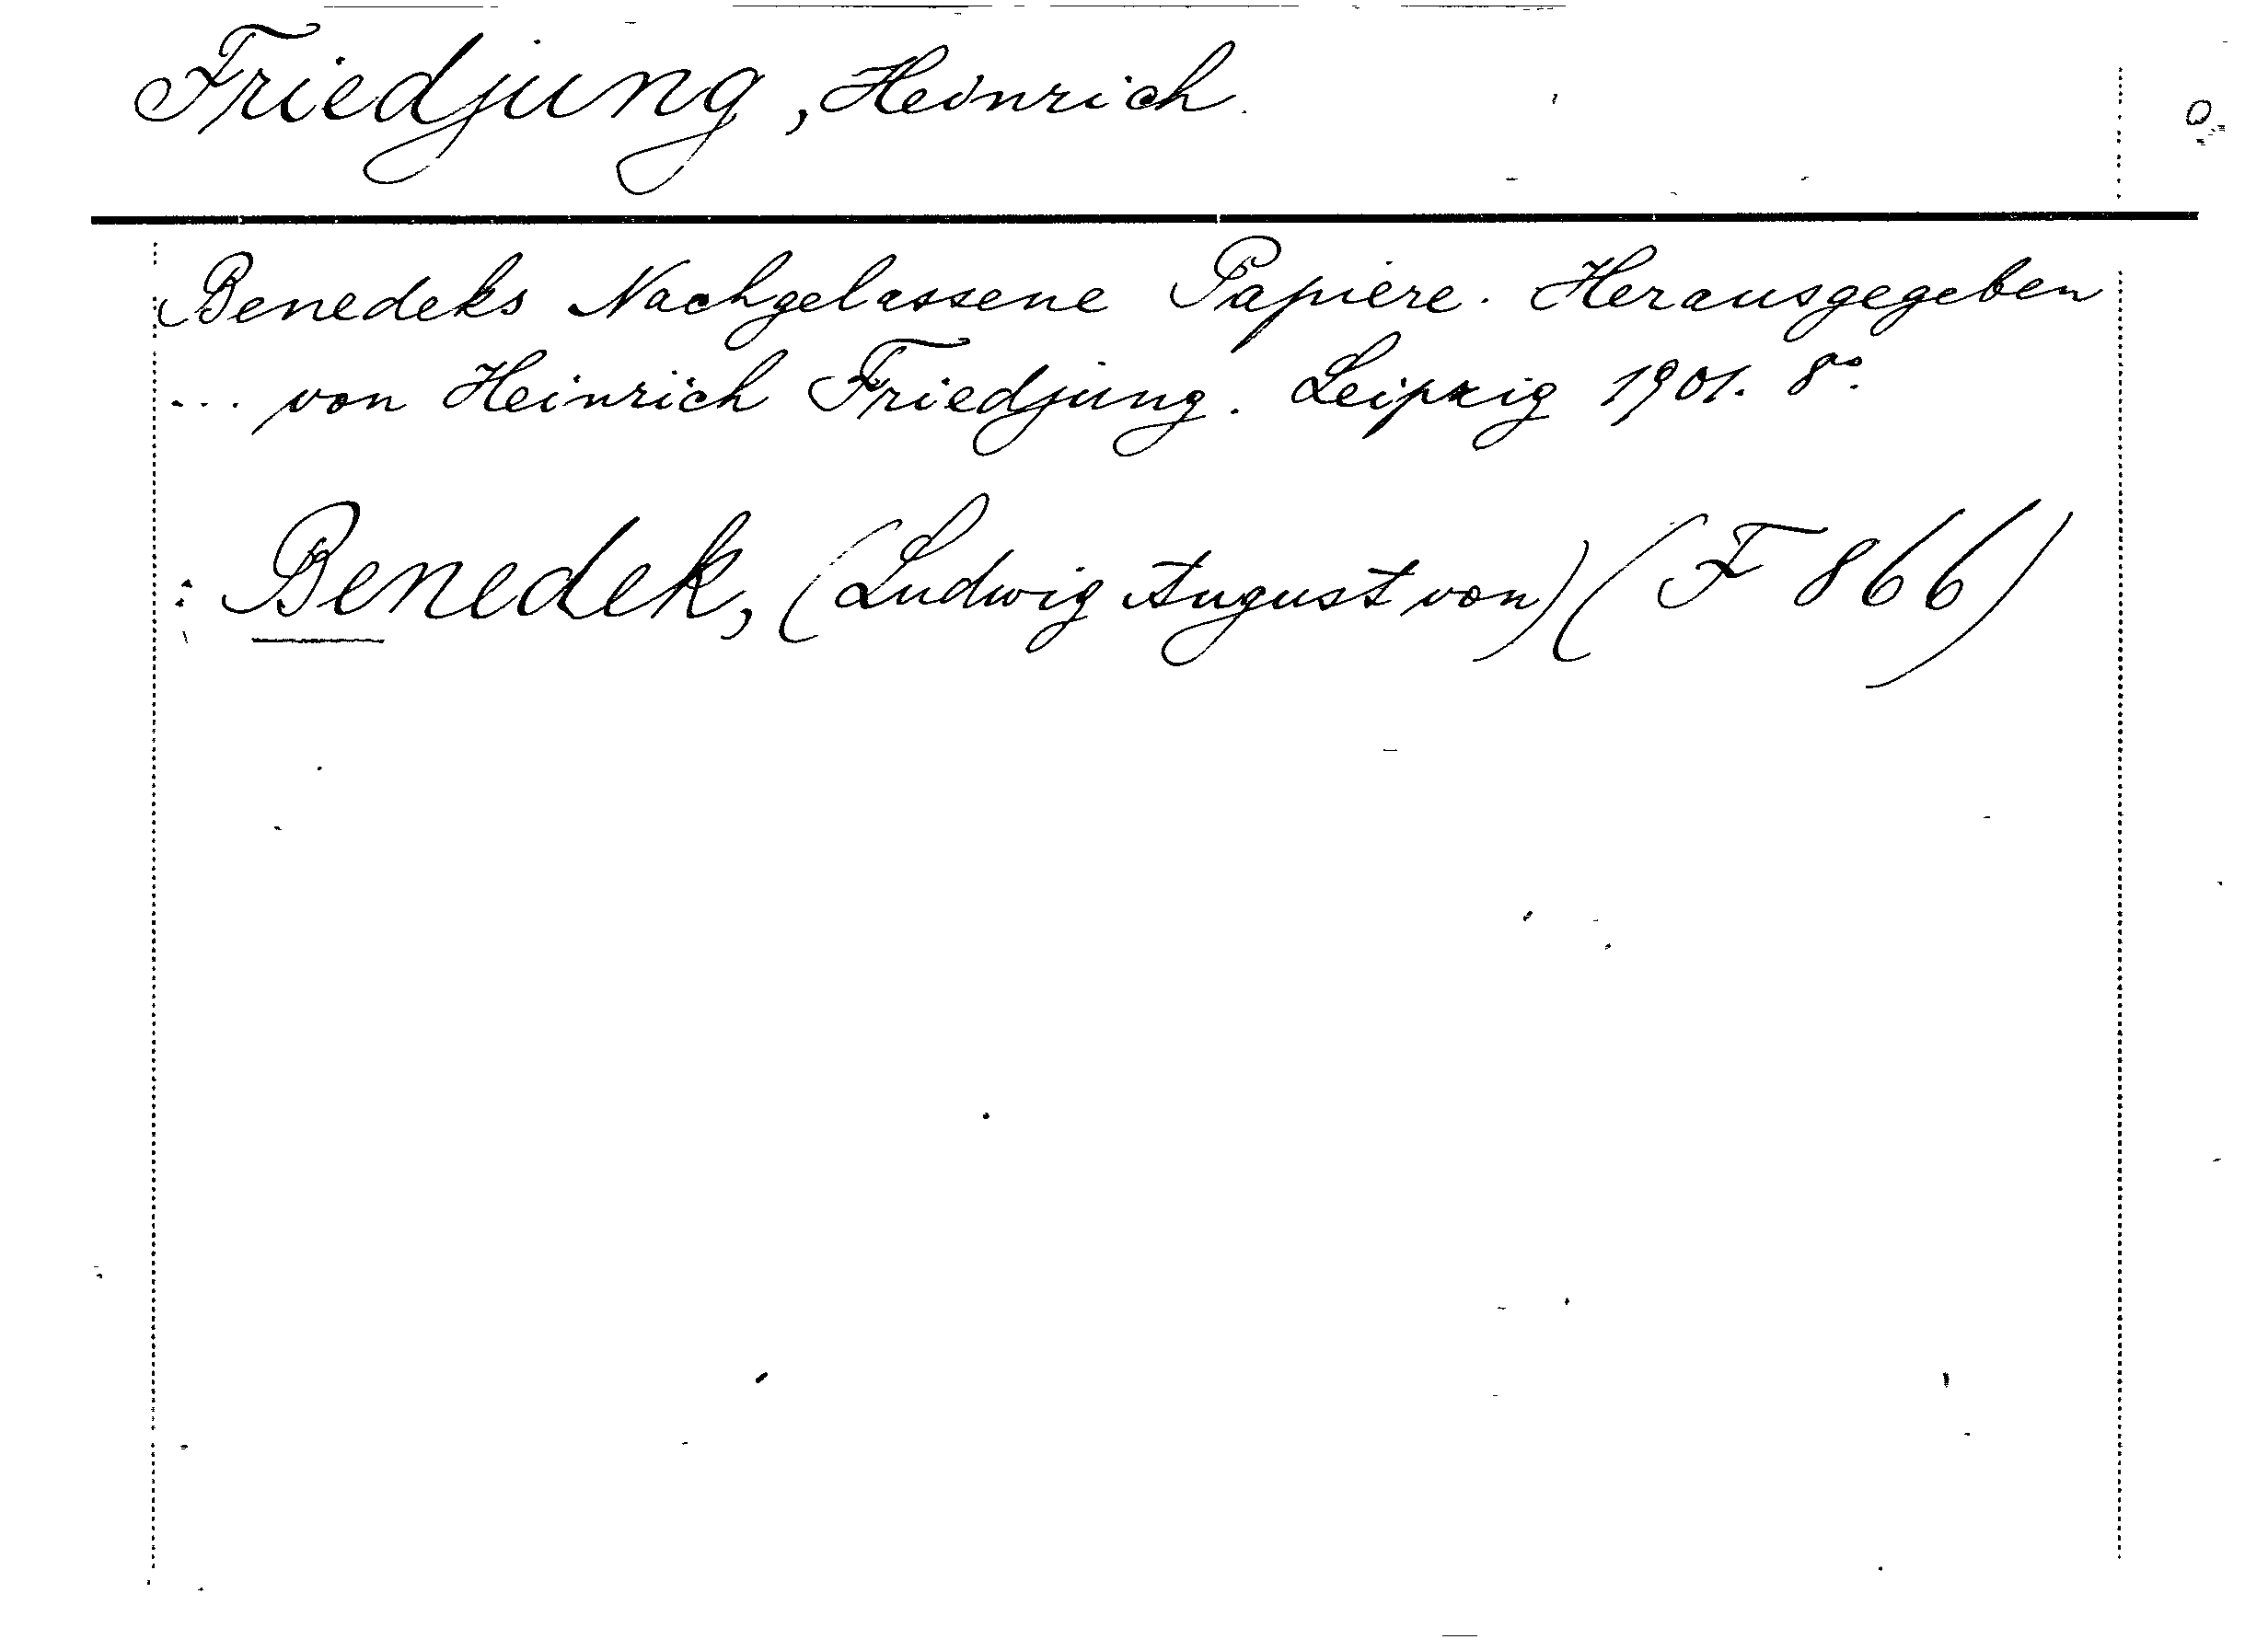 Friedjung, Heinrich.
Benedeks Nachgelassene Papiere. Herausgegeben
... von Heinrich Friedjung. Leipzig 1901. 8°.
: Benedek, (Ludwig August von) (F 866)